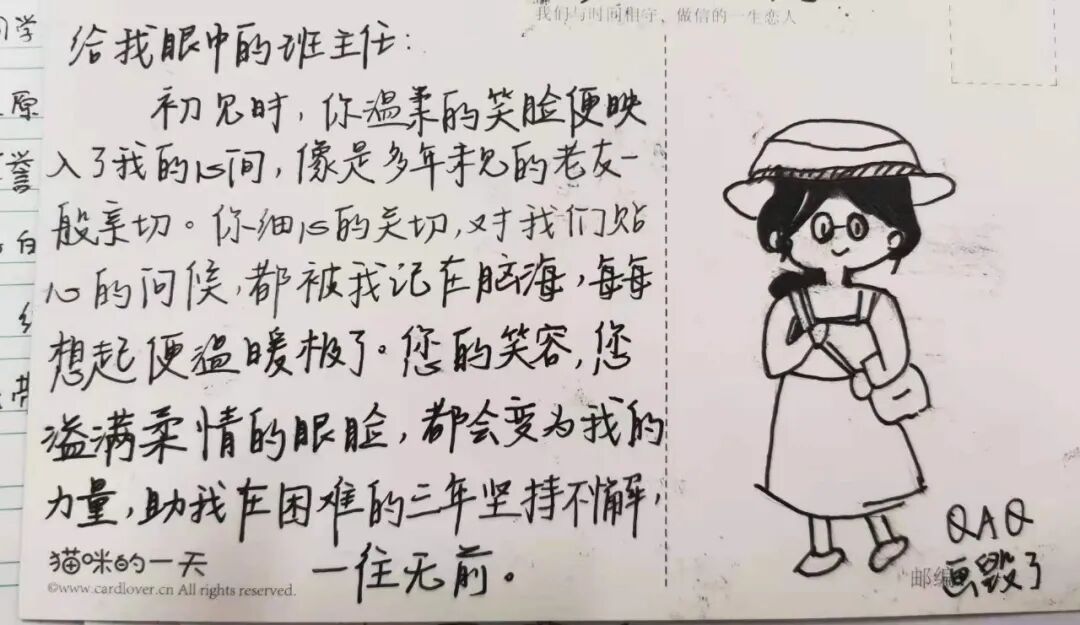 我们与时间相守、做信的一生恋人
给我眼中的班主任:
初见时,你温柔的笑脸便映
入了我的心间,像是多年未见的老友一
般亲切。你细心的关切,对我们贴
心的问候,都被我记在脑海,每每
想起便温暖极了。您的笑容,您
溢满柔情的眼睑,都会变为我的
力量,助我在困难的三年坚持不懈,
一往无前。
猫咪的一天
©www.cardlover.cn All rights reserved.
QAQ
邮编
画毁了
同学
原
誉
白